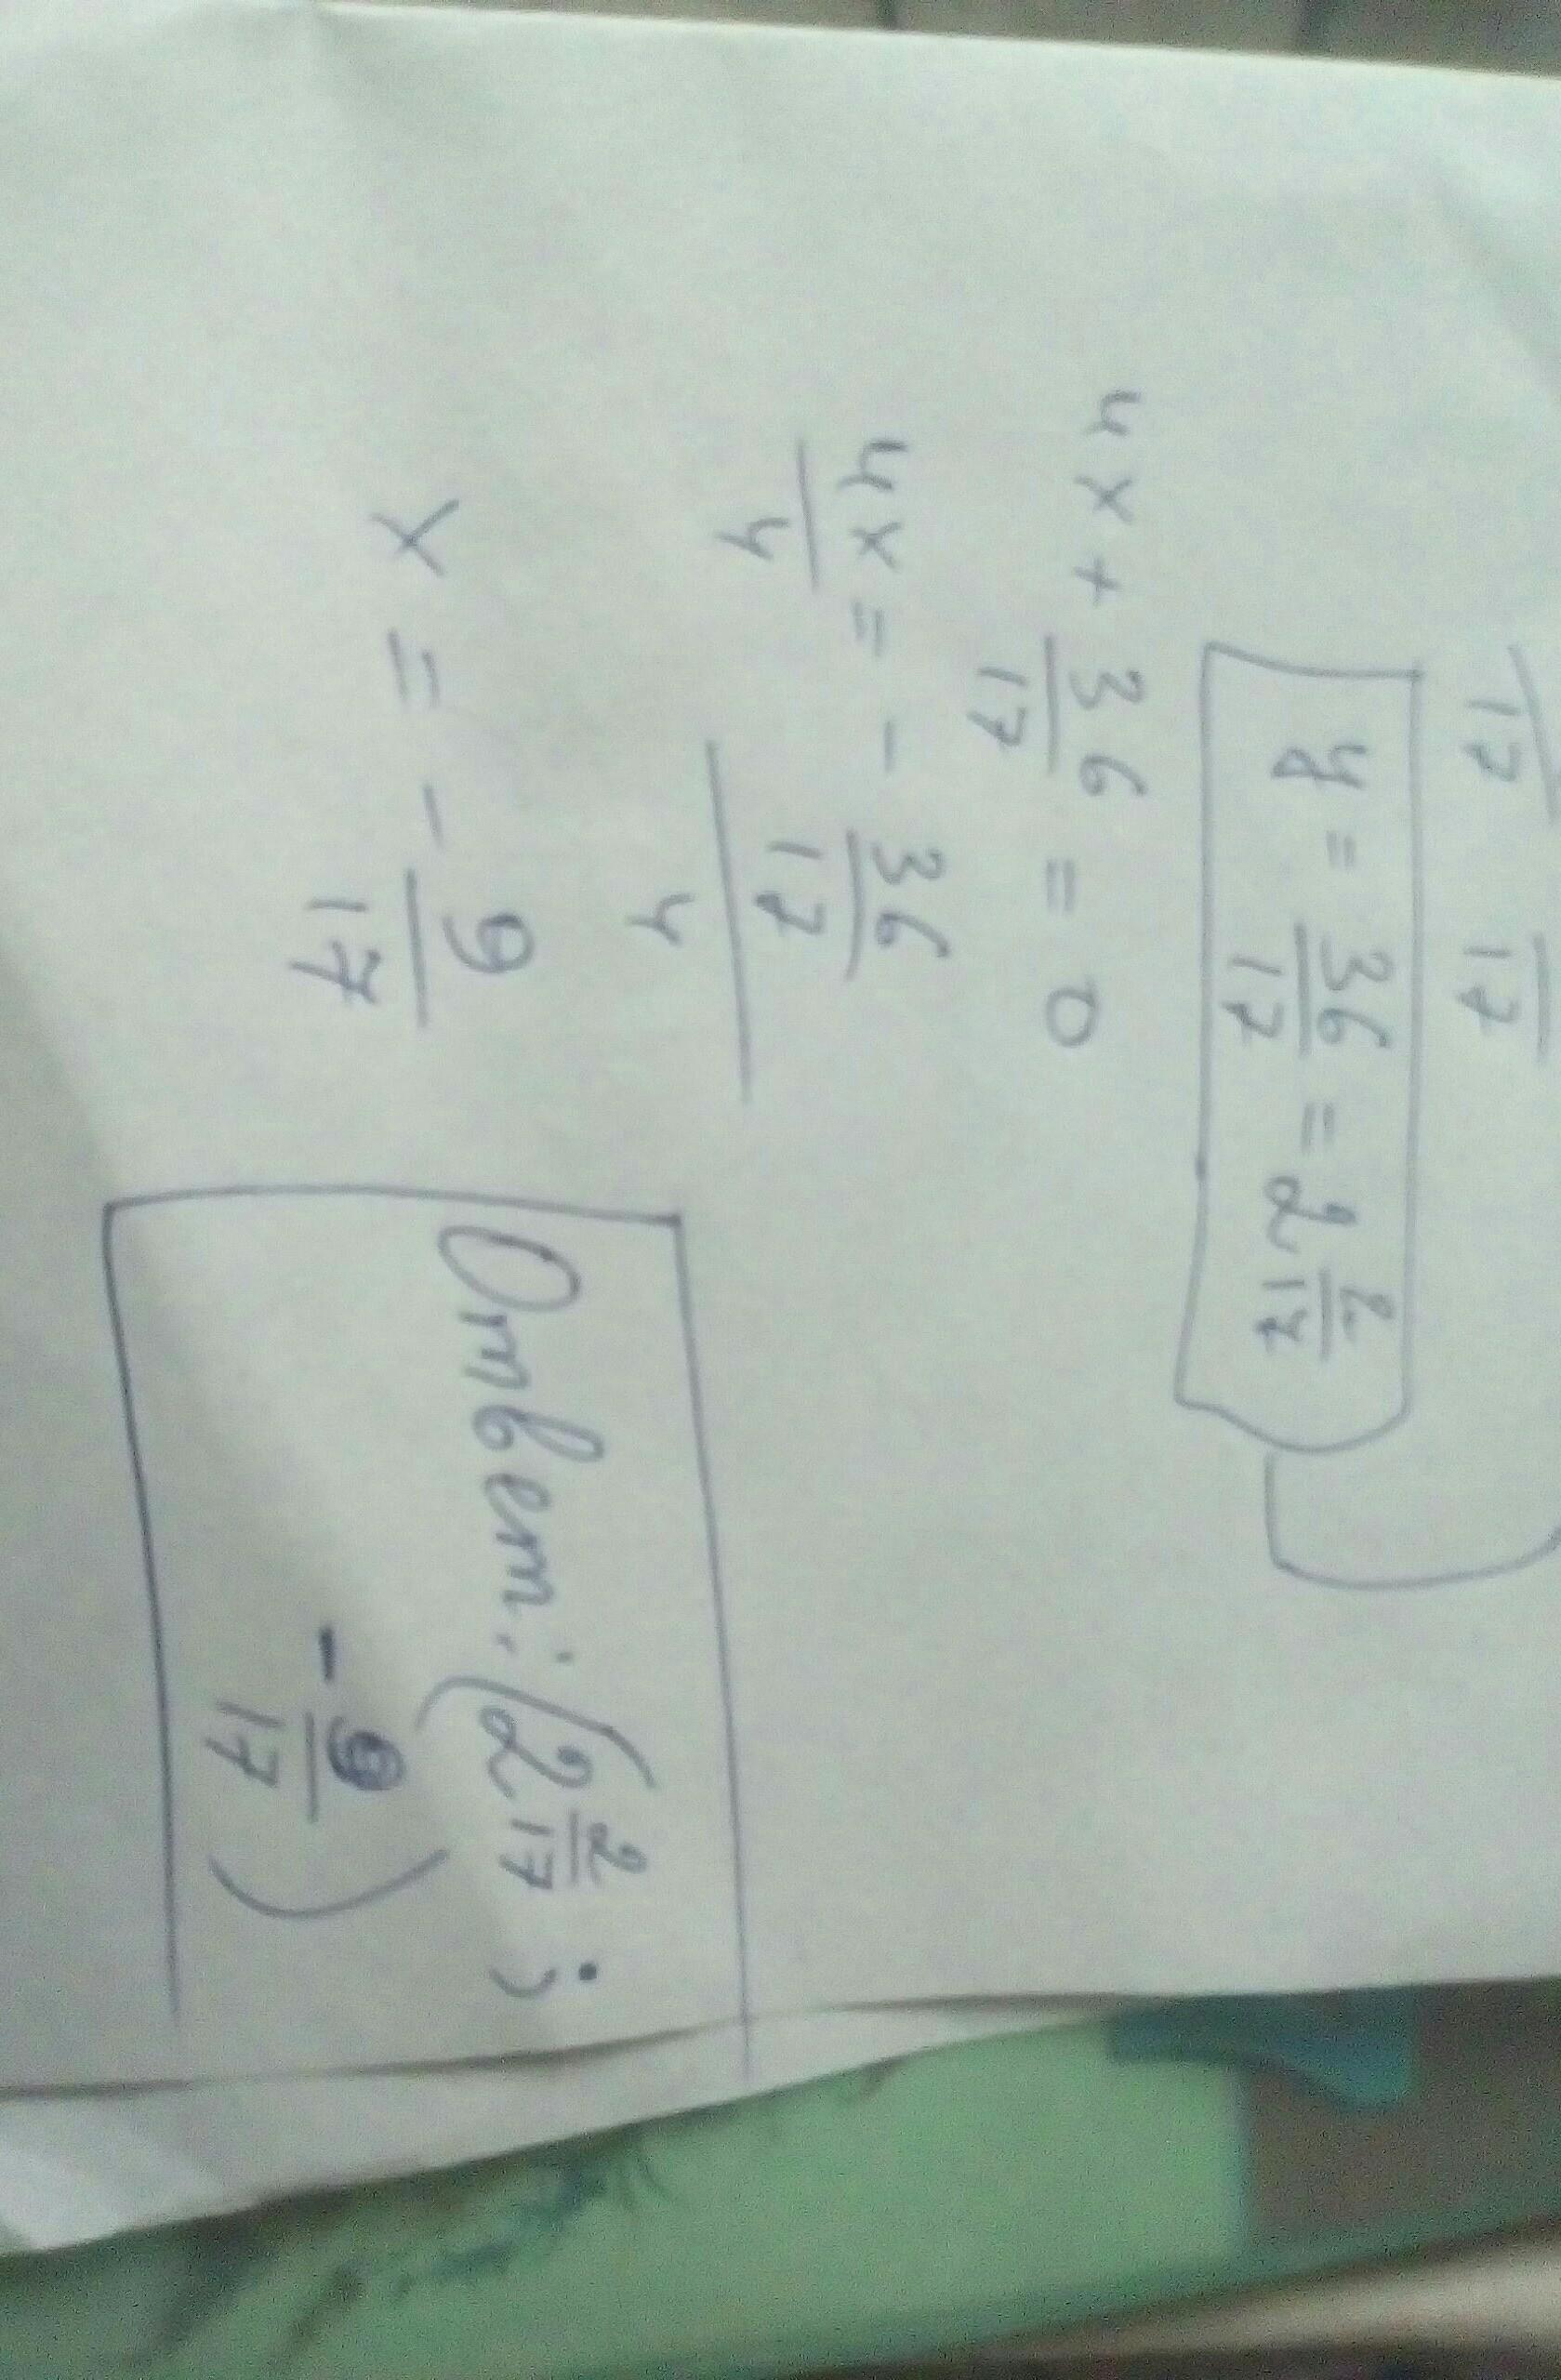 17 17
y = 36/17 = 2 2/17
4x + 36/17 = 0
4x/4 = - 36/17/4
x = - 9/17
Ответ: (2 2/17 ;
- 9/17)